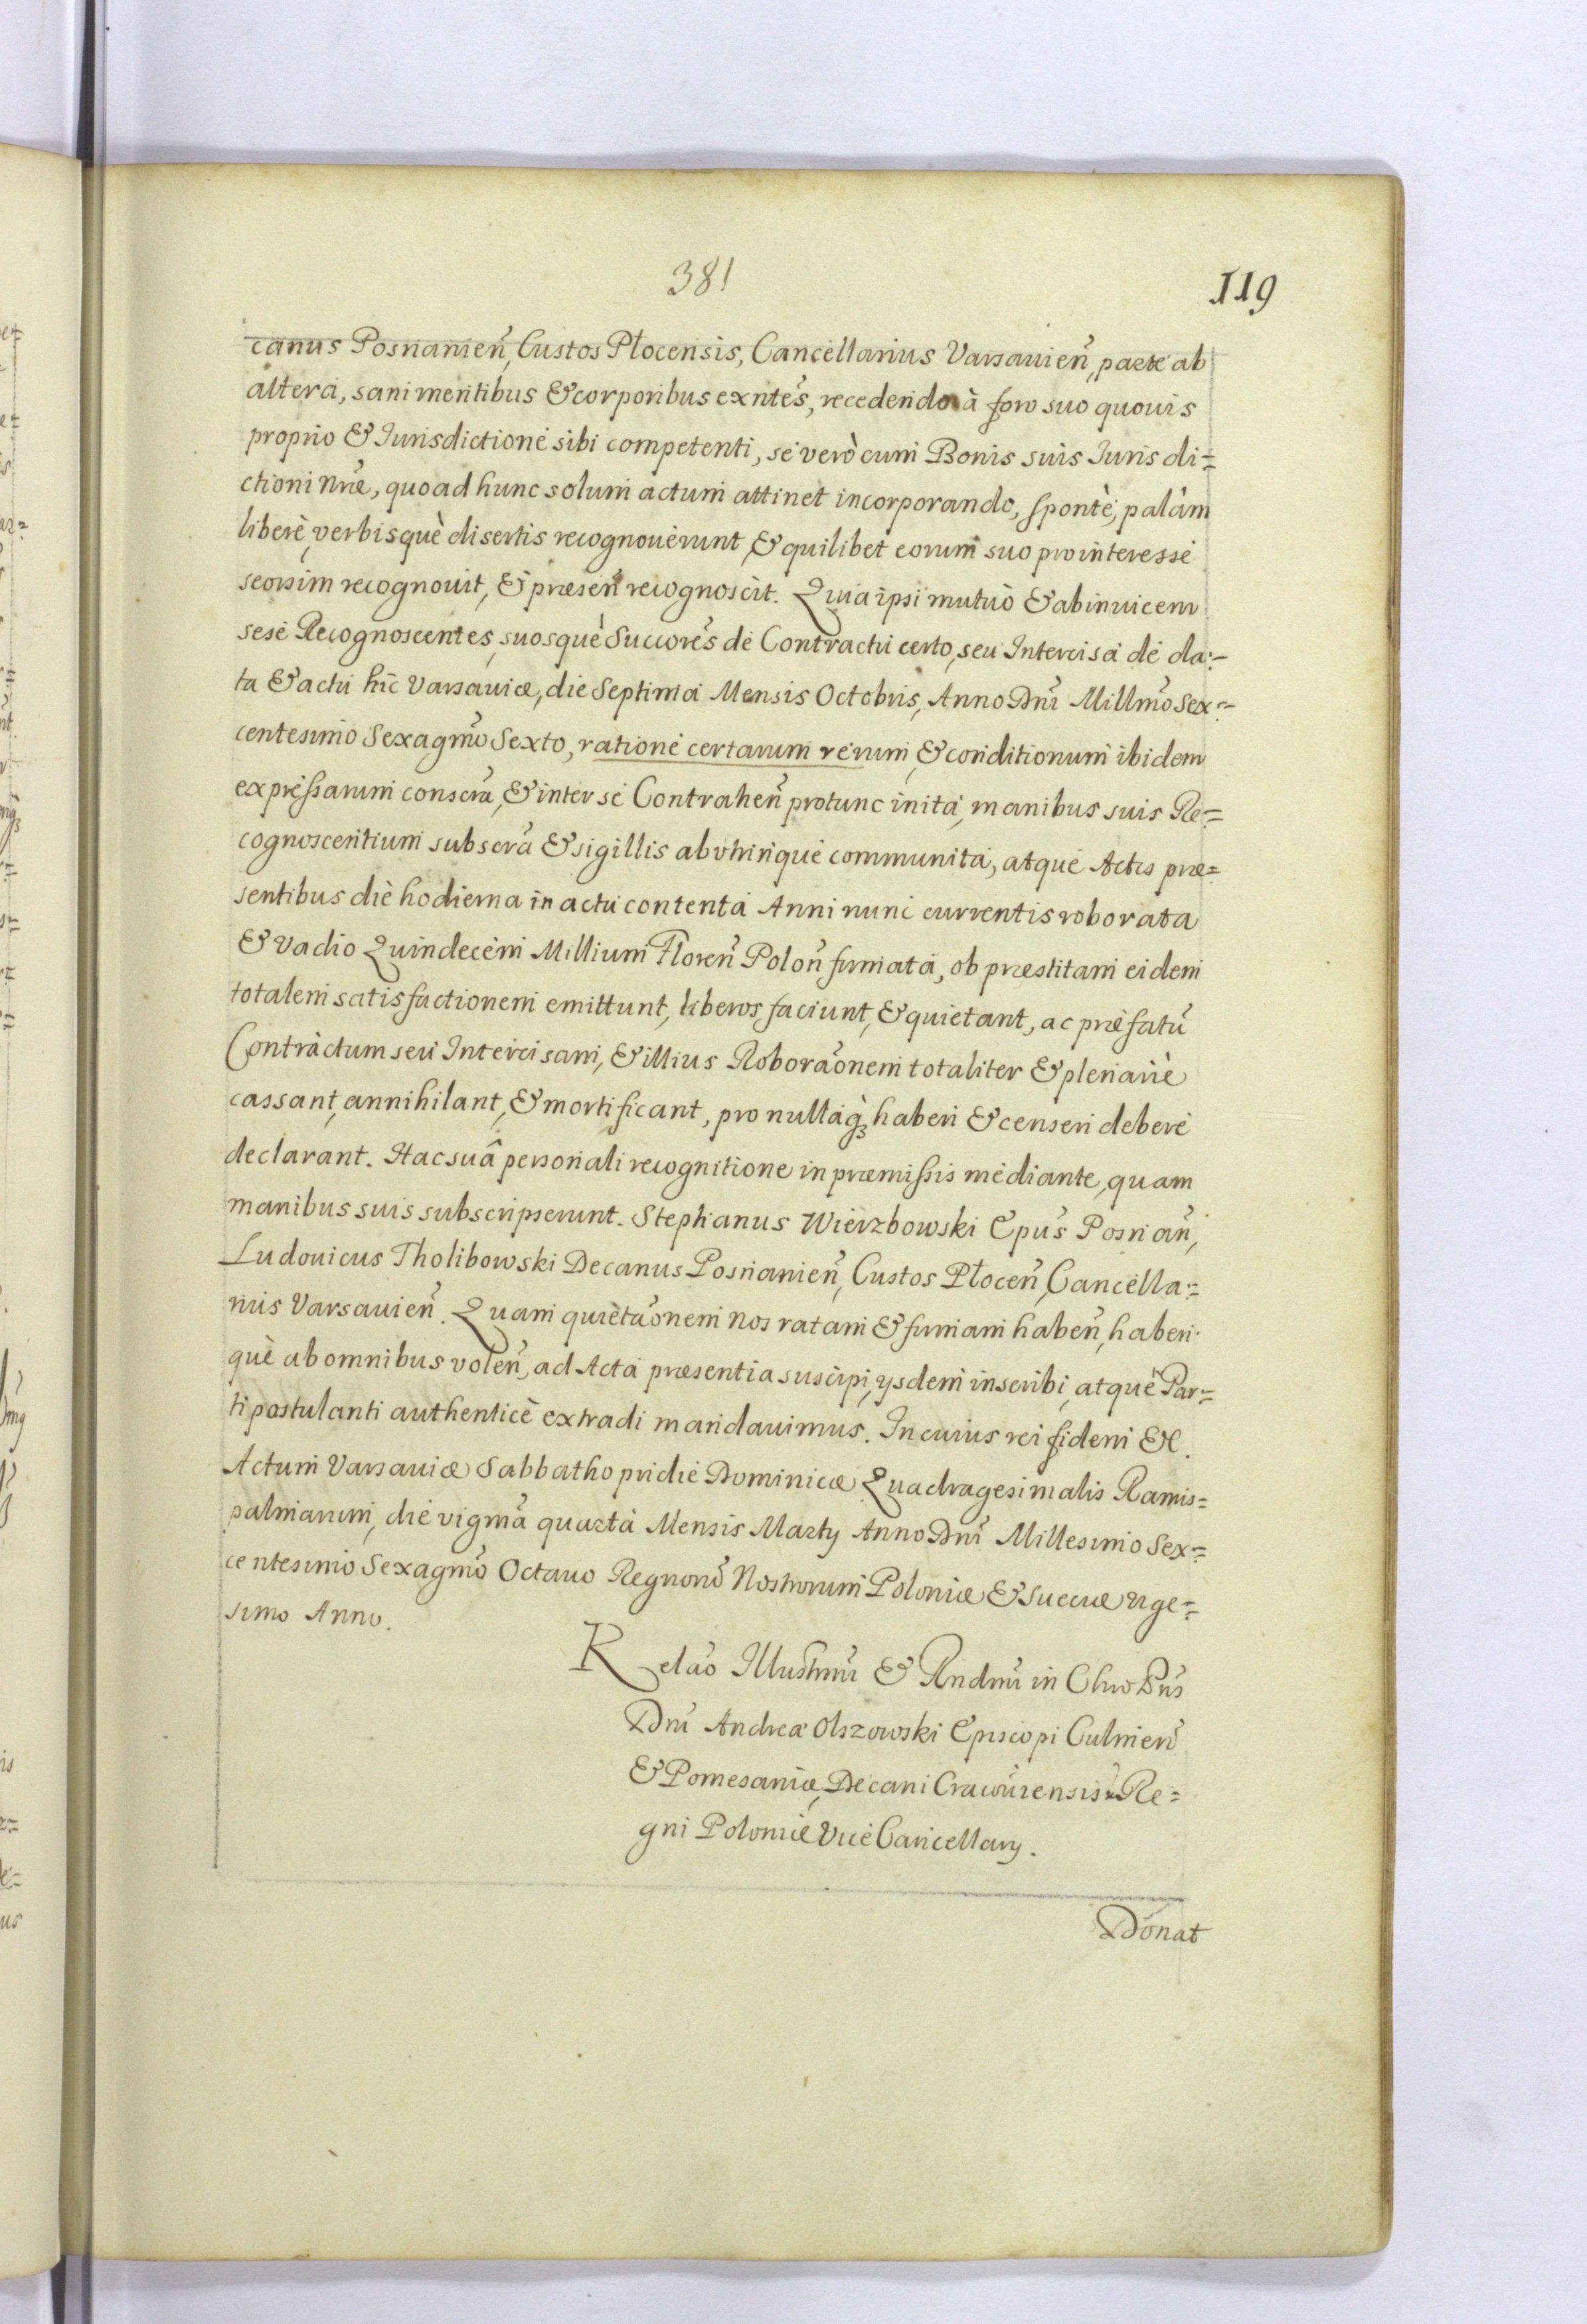 381
119
canus Posnanień, Custos Płocensis, Cancellarius Varsauień, parte ab
altera, sani mentibus & corporibus exntes, recedendo à foro suo quouis
proprio & Iurisdictione sibi competenti, se verò cum Bonis suis Iurisdi=
ctioni nrae, quoad hunc solum actum attinet incorporando, spontè, palàm
liberè, verbisquè disertis recognouerunt, & quilibet eorum suo pro interesse
seorsim recognouit, & praesen̄ recognoscit. Quia ipsi mutuò & abinuicem
sese Recognoscentes, suosquè Succores de Contractu certo, seu Intercisa de da=
ta & actu hic Varsauiae, die Septima Mensis Octobris, Anno Dni Millmo Sex=
centesimo Sexagmo Sexto, ratione certarum rerum, & conditionum ibidem
expressarum conscra, & inter se Contrahen̄ protunc inita, manibus suis Re=
cognoscentium subscra & sigillis abvtrinque communita, atque Actis prae=
sentibus die hodierna in actu contenta Anni nunc currentis roborata
& Vadio Quindecem Millium Floren̄ Polon̄ firmata, ob praestitam eidem
totalem satisfactionem emittunt, liberos faciunt, & quietant, ac praefatū
Contractum seu Intercisam, & illius Roboraōnem totaliter & plenariè
cassant, annihilant, & mortificant, pro nullaq̀ȝ haberi & censeri debere
declarant. Hac suâ personali recognitione in praemissis mediante, quam
manibus suis subscripserunt. Stephanus Wierzbowski Epus Posnan̄,
Ludouicus Tholibowski Decanus Posnanien̄, Custos Płocen̄, Cancella=
rius Varsauien̄. Quam quietaōnem Nos ratam & firmam haben̄, haberi
què ab omnibus volen̄, ad Acta praesentia suscipi, ysdem inscribi, atquè Par=
ti postulanti authenticè extradi mandauimus. In cuius rei fidem &c.
Actum Varsauiae Sabbatho pridie Dominicae Quadragesimalis Ramis=
palmarum, die vigma quarta Mensis Marty Anno Dni Millesimo Sex=
centesimo Sexagmo Octauo Regnorū Nostrorum Poloniae & Sueciae vige=
simo Anno.
Relao Illustrmi & Rndmi in Chro Pris
Dni Andreae Olszowski Episcopi Culmen̄
& Pomesaniae, Decani Cracouiensis Re=
gni Poloniae ViceCancellary.
Donat